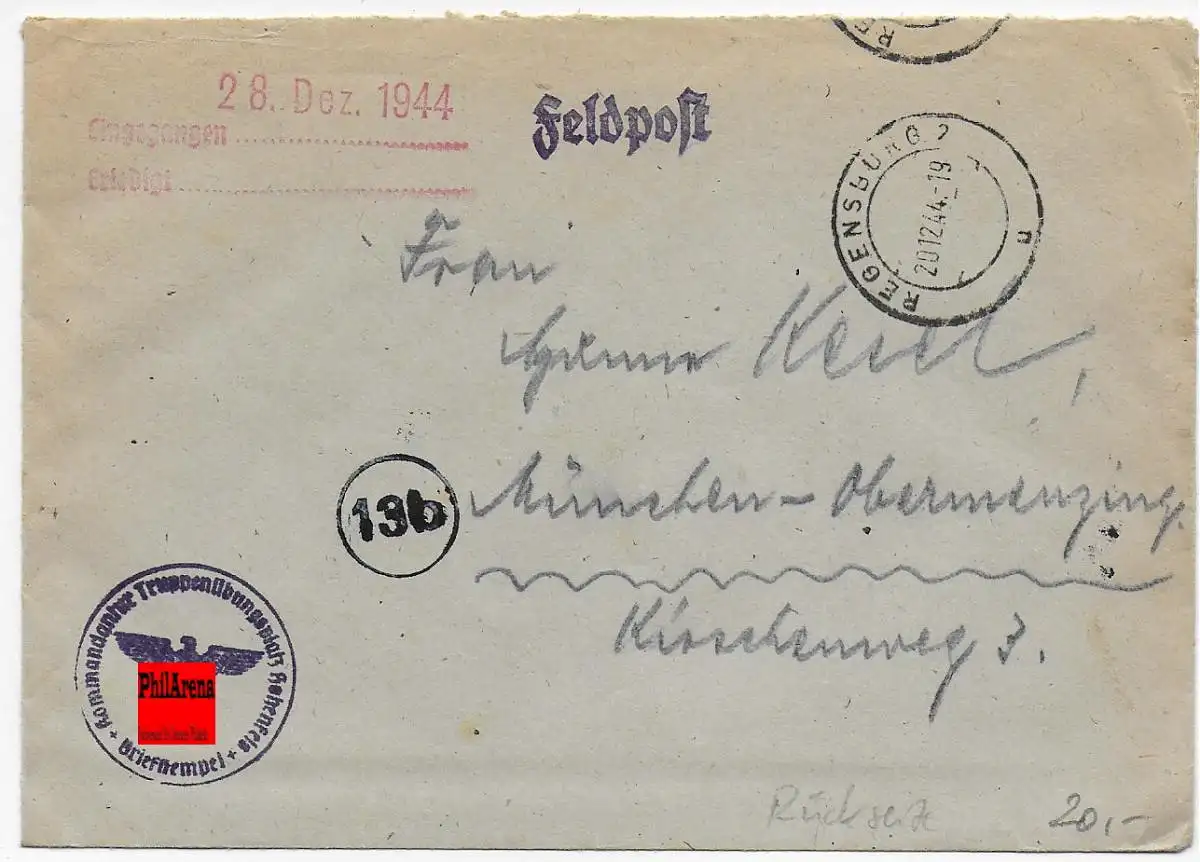 28. Dez. 1944
Eingegangen
Erledigt
Feldpost
RE
REGENSBURG 2
20.12.44.-19
n
Frau
Kesel,
13b
München-Obermenzing.
Kirschenweg 3.
Kommandantur Truppenübungsplatz Hohenfels
+ Briefstempel +
PhilArena
Rückseite
20,-